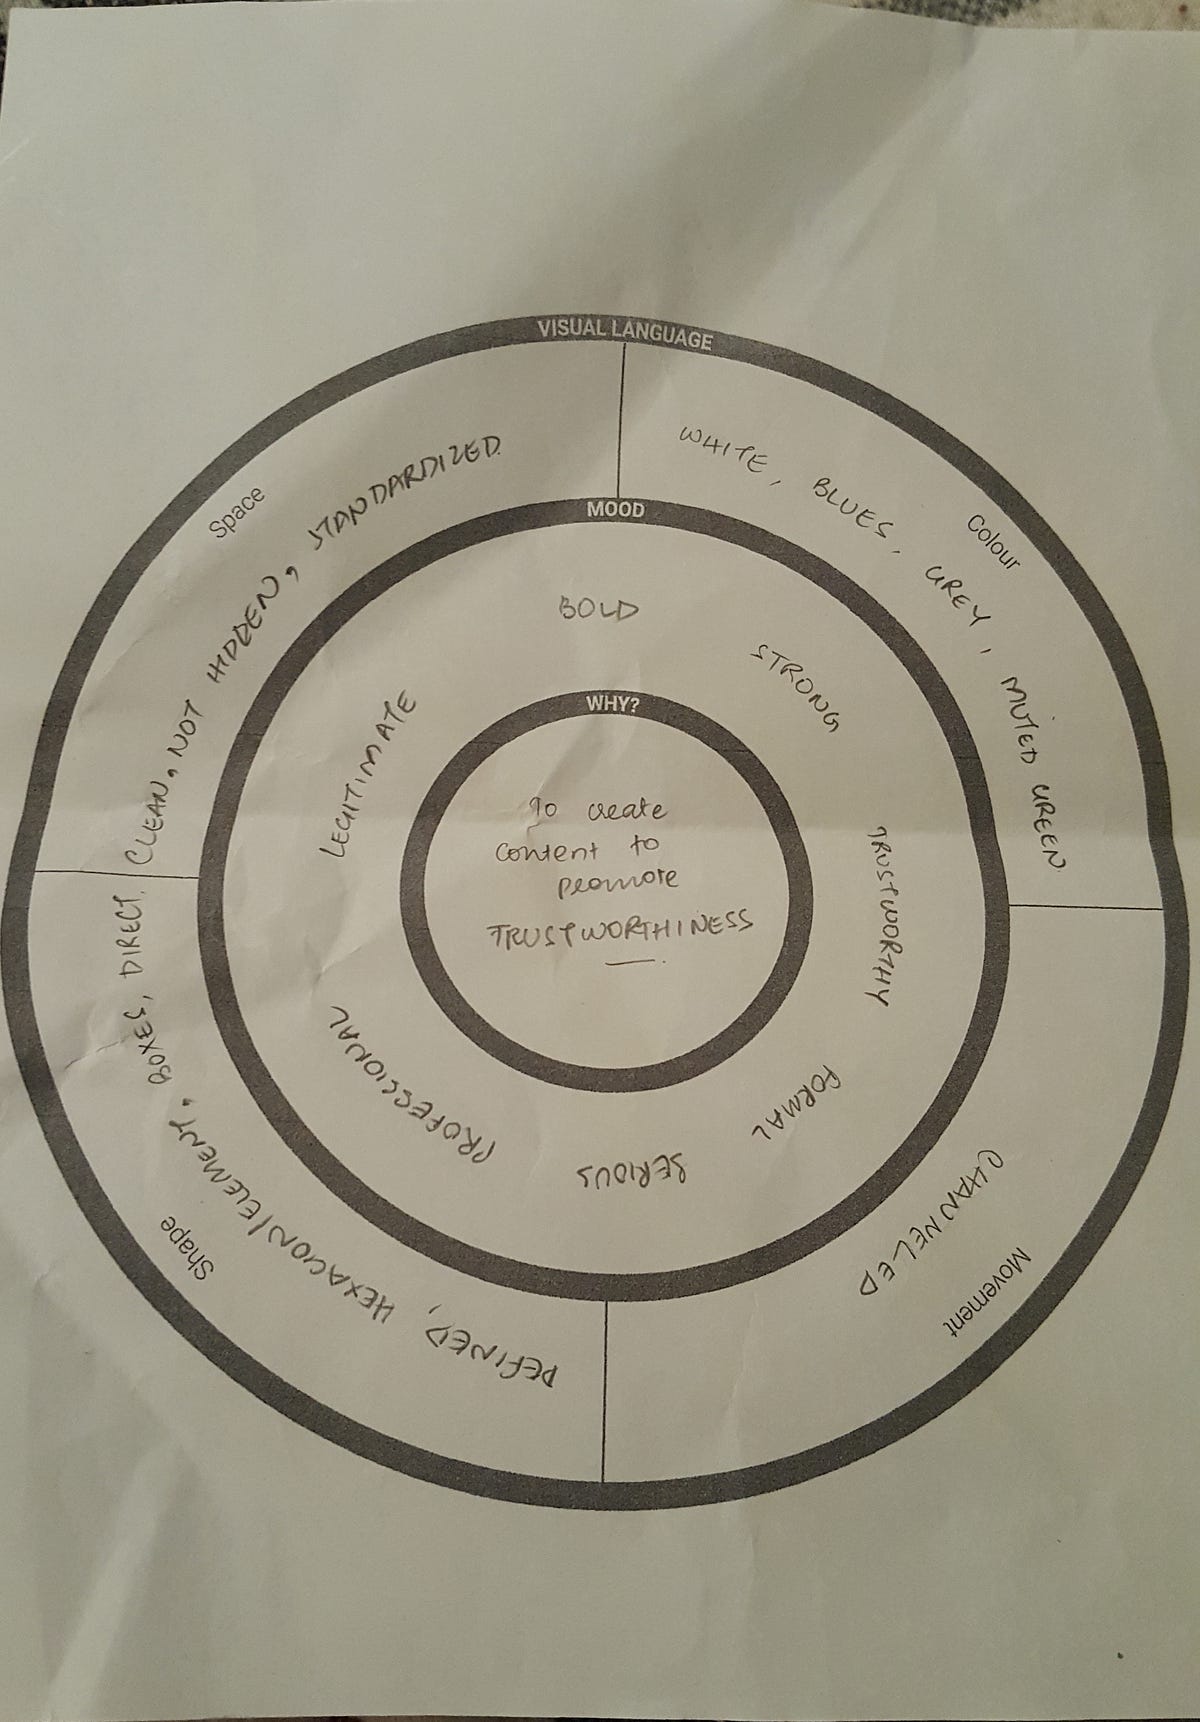 VISUAL LANGUAGE
Space
CLEAN, NOT HIDDEN, STANDARDIZED
Colour
WHITE, BLUES, GREY, MUTED GREEN
Movement
CHANNELED
Shape
DEFINED, HEXAGON/ELEMENT, BOXES, DIRECT
MOOD
BOLD
STRONG
TRUSTWORTHY
FORMAL
SERIOUS
PROFESSIONAL
LEGITIMATE
WHY?
To create
content to
promote
TRUSTWORTHINESS